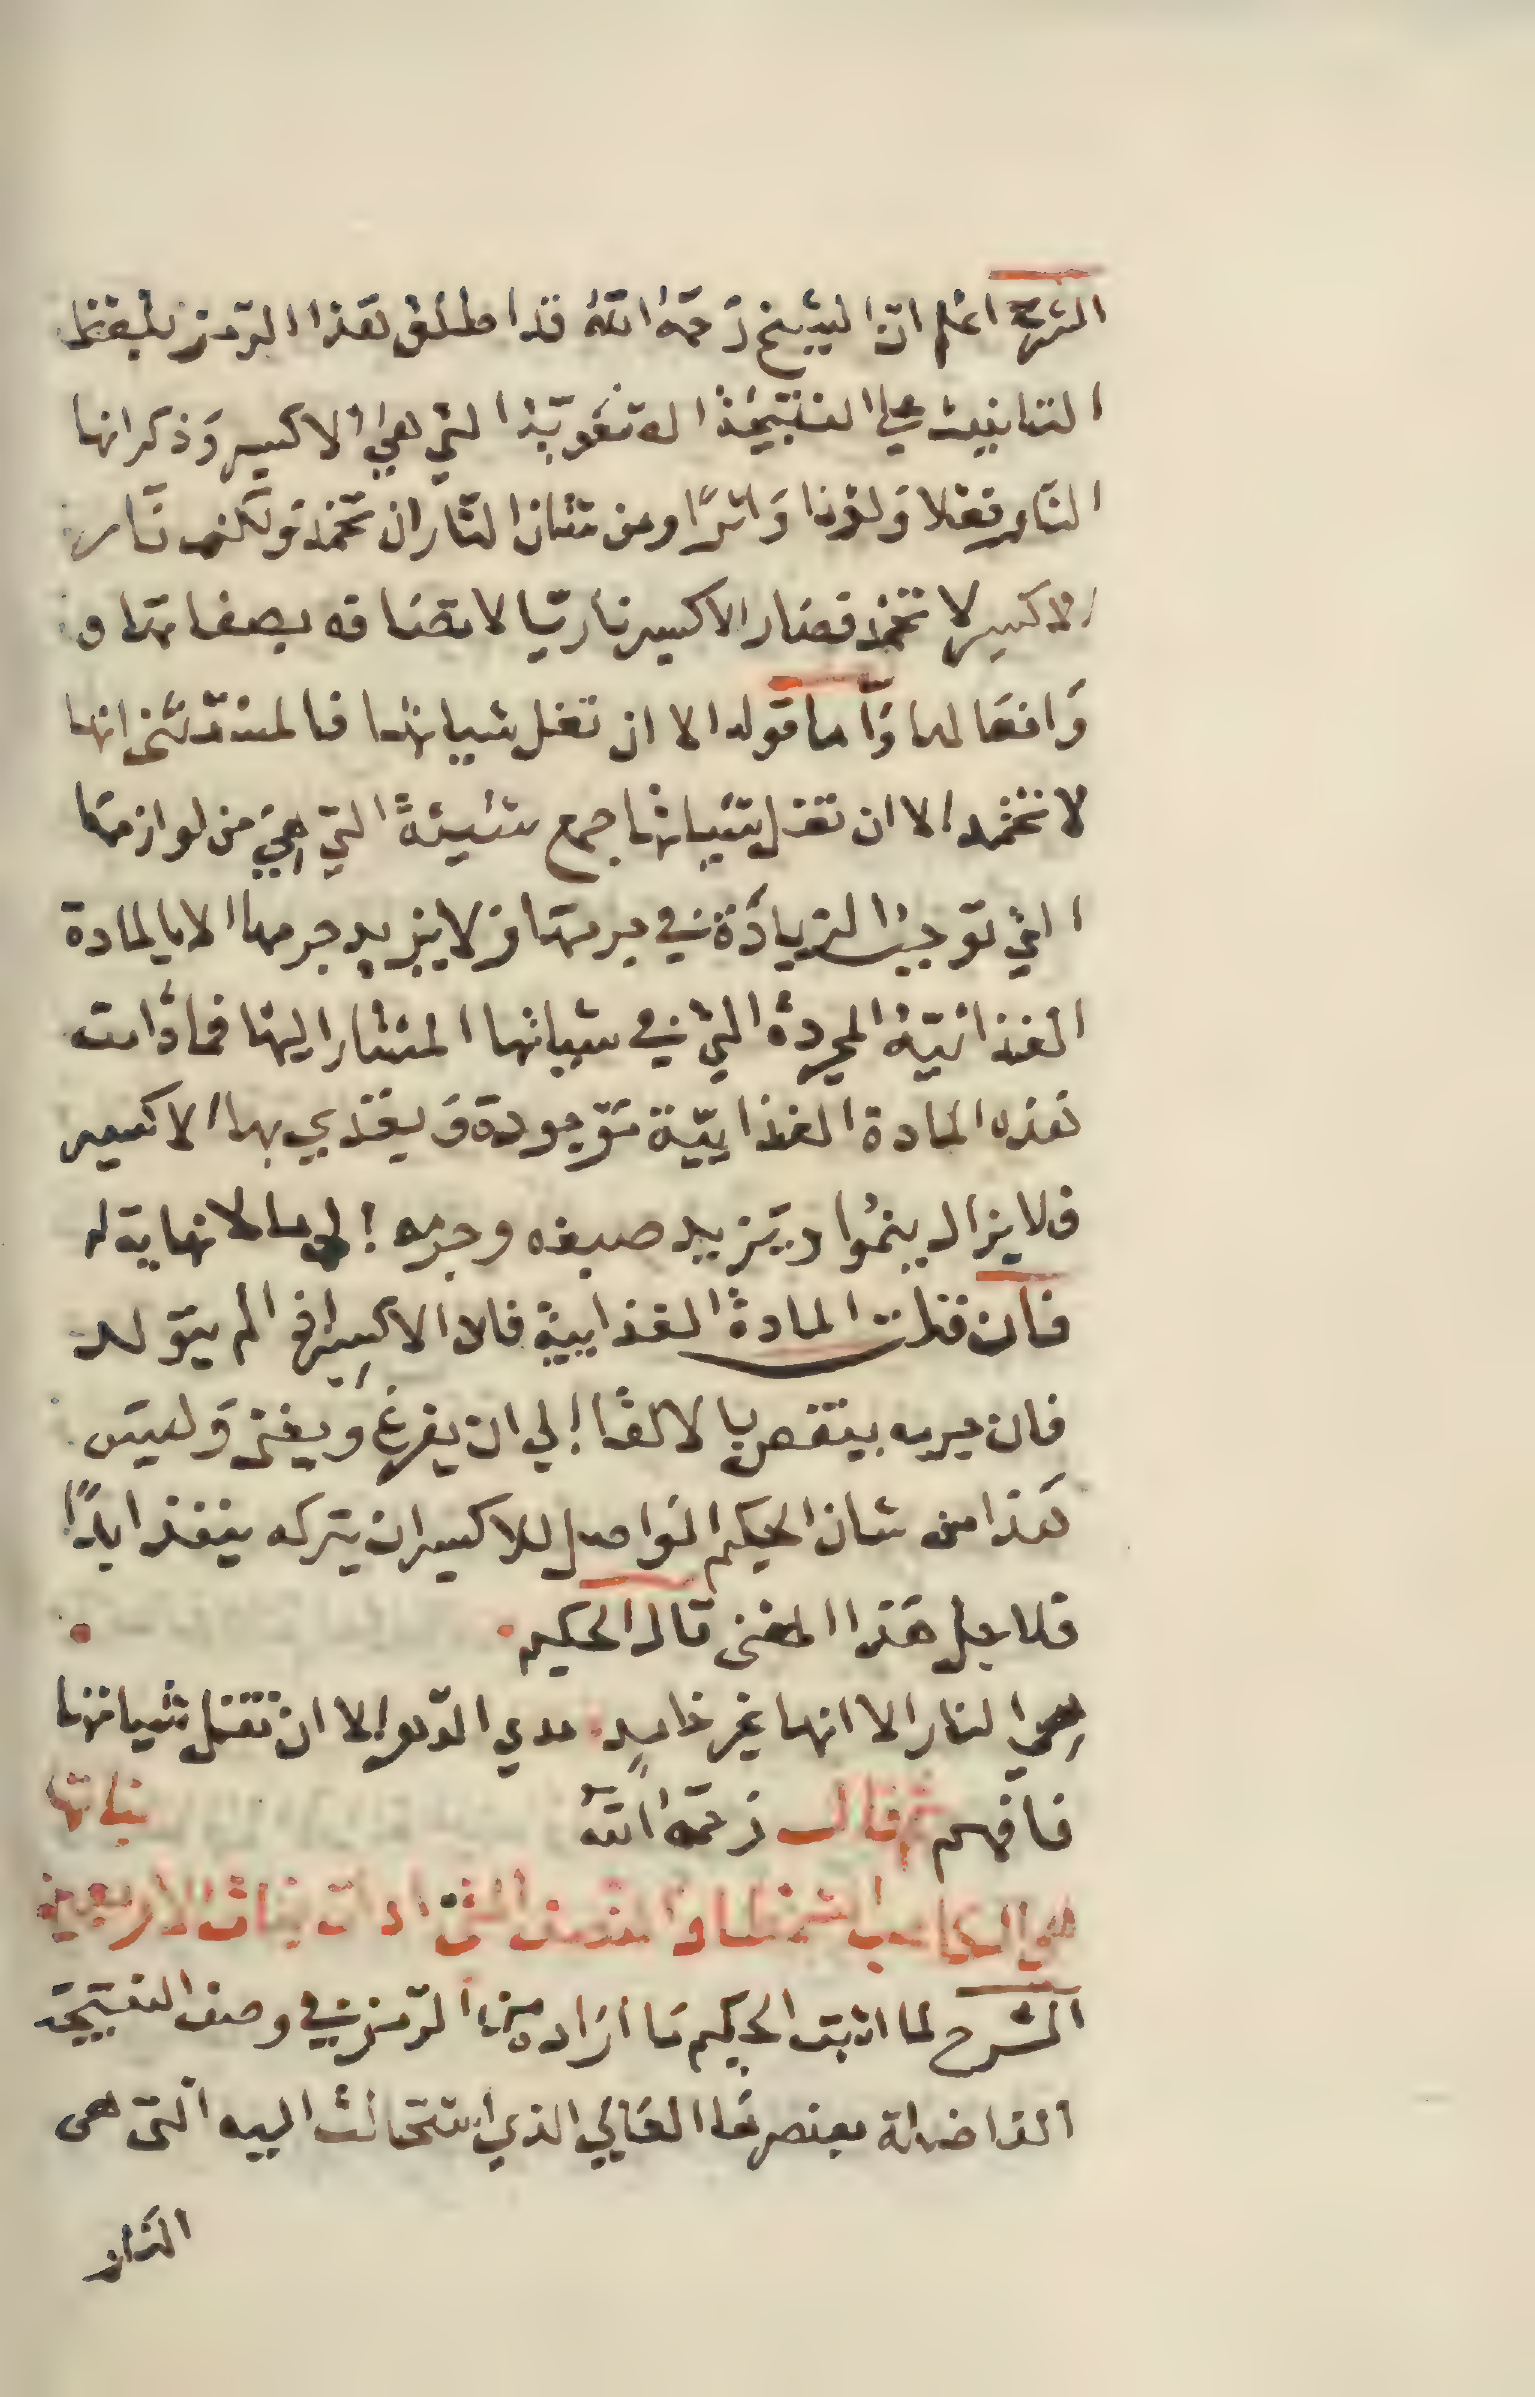 الشرح اعلم ان الشيخ رَحمهُ اللهُ قد اطلق هَذا الرّمز بلفظ
التانيث علي النتيجة المَعْنَويّة التي هيَ الاكسير وَذكر انها
النّار فعْلا وَلوْنا وَاثرًا ومن شان النّار ان تخمد وَلكن نَار
الاكسير لا تخمد فصَار الاكسير ناريّا لاتصَافه بصفاتهَا و
وَافعَالها وَاما قوله الا ان تغل شياتها فالمسْتَثنى انها
لا تخمد الا ان تغل شيَاتها جمع شئيةً التي هيَ من لوازمهَا
التي توجبُ الزيادَة في جرمهَا وَلا يزيد جرمها الا بالمادة
الغذائيّة المجردة التي في شياتها المشار اليهَا فما دَامت
هَذه المادة الغذاييّة مَوْجودة وَيغتذي بها الاكسير
فلا يزال ينمُوا وَيتزيد صبغه وجرمه إلي ما لا نهاية له
فان قلت المادةُ الغذاييةُ فلان الاكسير اذا لم يتولد
فان جرمه ينتقص بالالقَا إلي ان يفرغ ويفنى وَليسَ
هَذا من شان الحكيم الوَاصل للاكسير ان يتركه ينفذ ابدًا
فلاجل هَذا المعْنى قال الحكيم
هيَ النار الا انها غير خامدٍ مدي الدّهر إلا ان تقتل شياتها
فافهم ثم قال رَحمَهُ اللهُ بناتها
هي الكاعب الشمطا والنصف التي ادات بنات الاربعين
الشرح لما اثبت الحكيم مَا أرَاده مِن الرّمز في وصف النتيجَة
الفاضلة بعنصرهَا العَالي الذي استحالتْ اليه التي هى
النَار